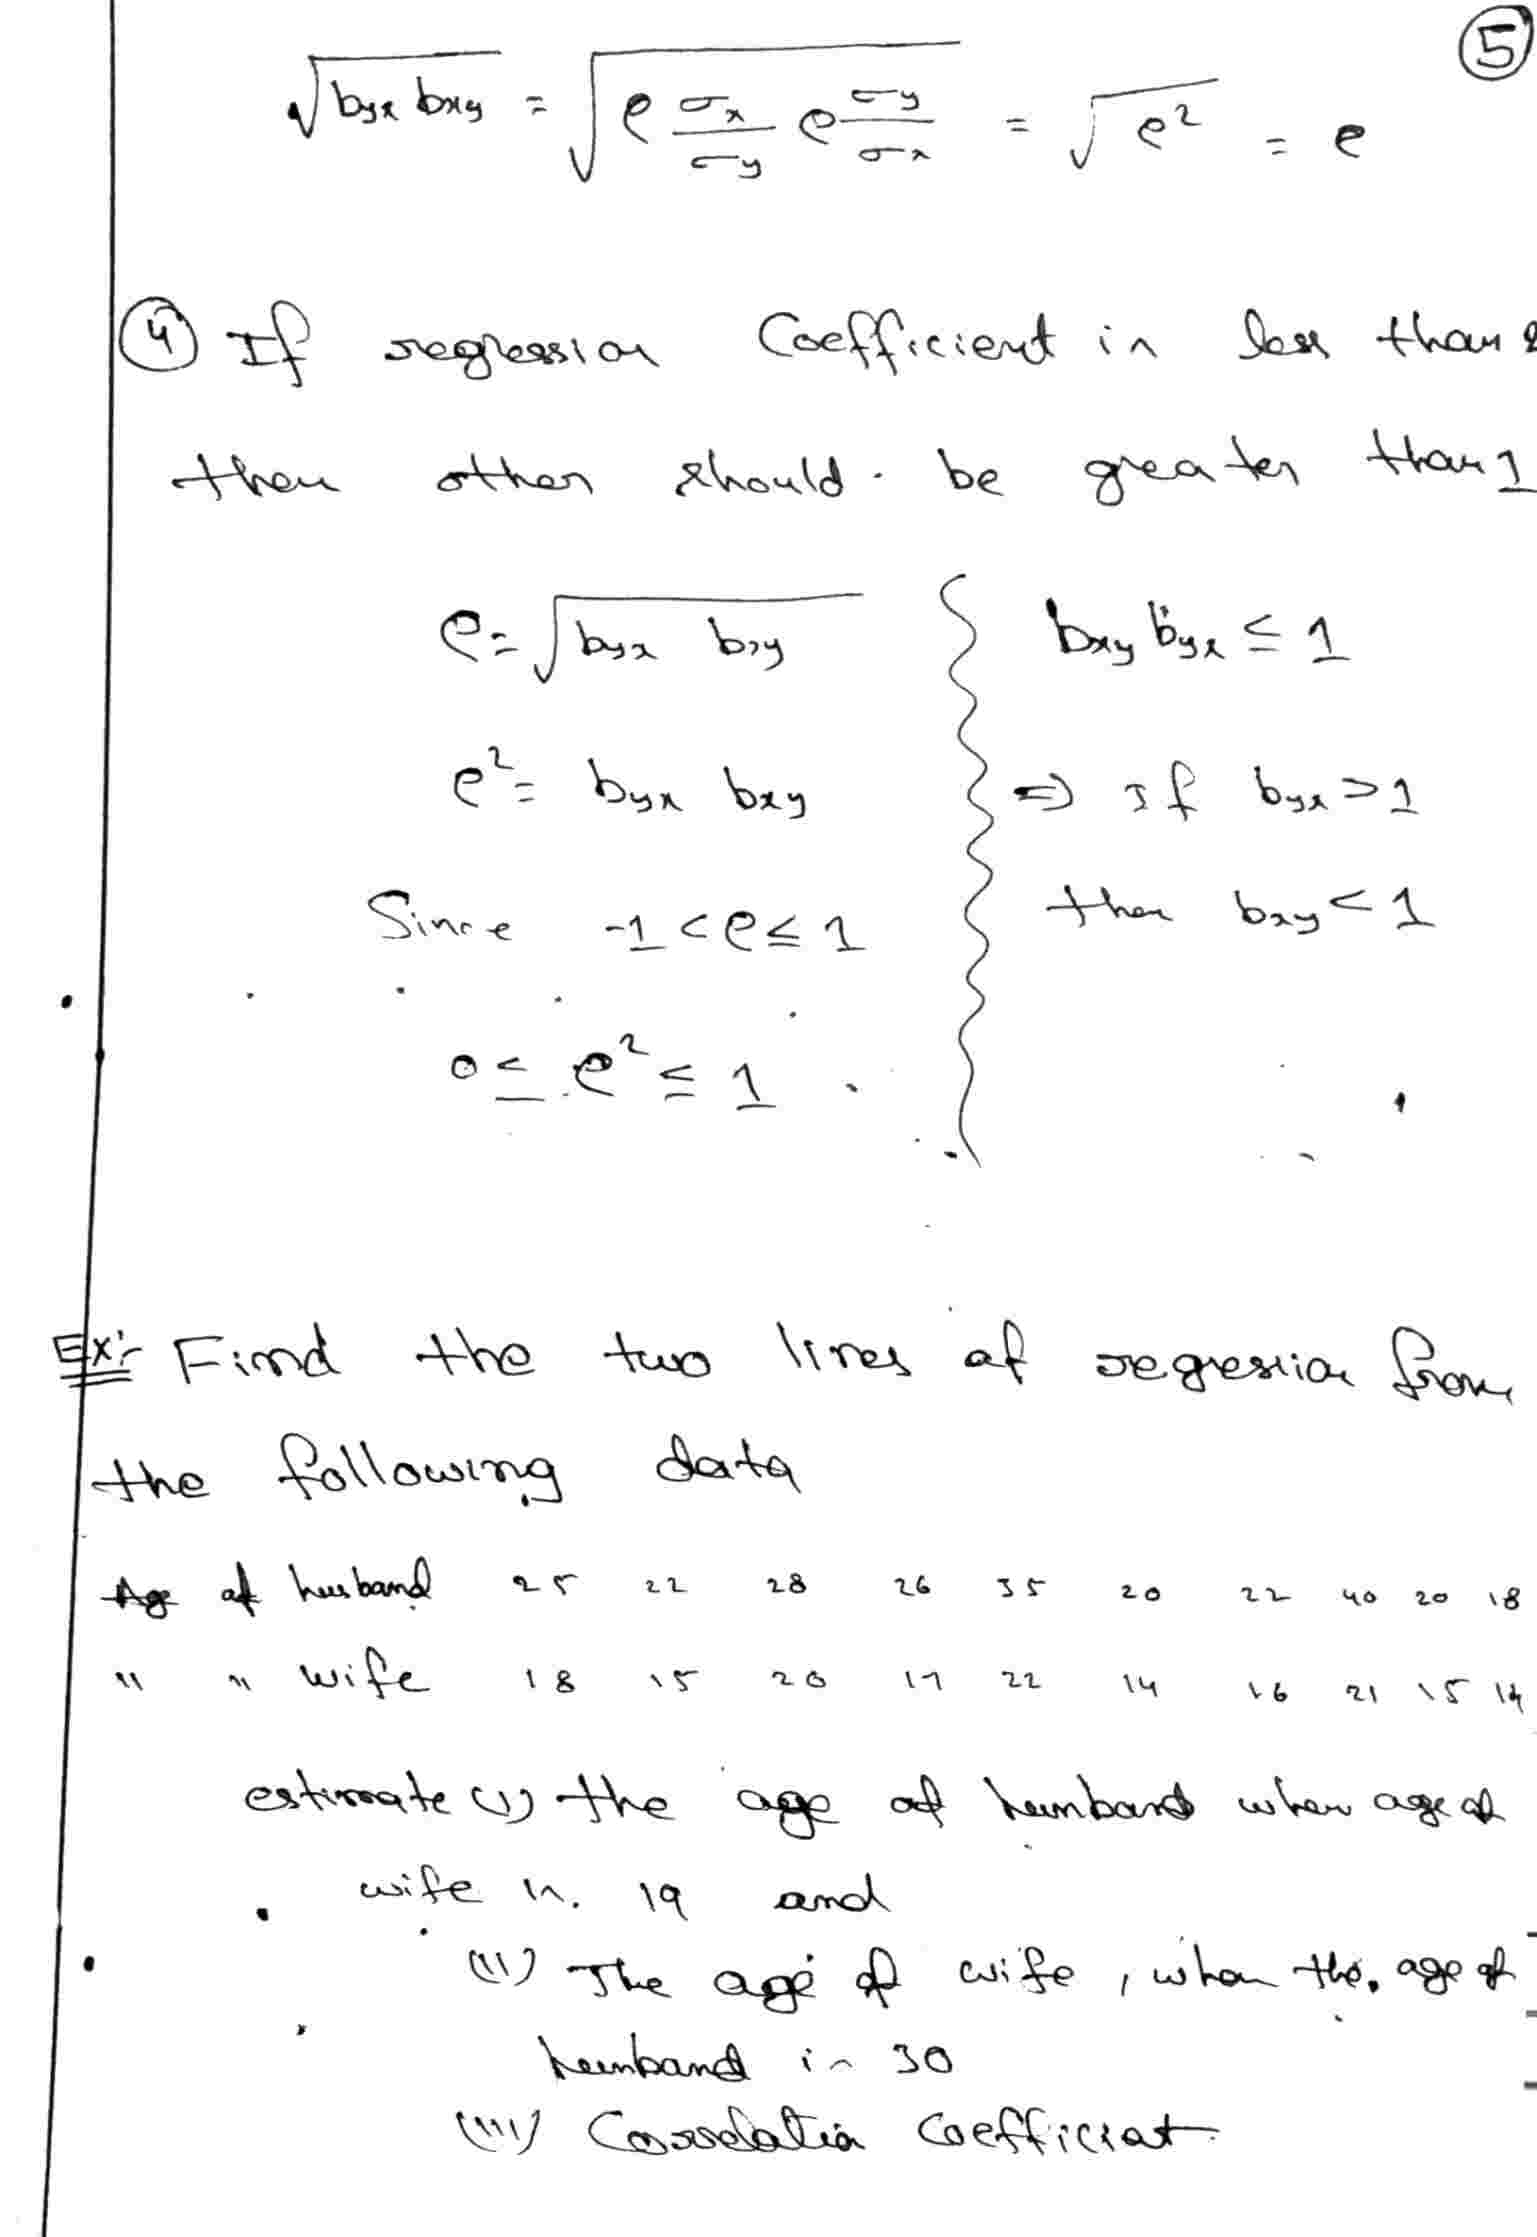 5
√(byx bxy) = √(ρ σx/σy ρ σy/σx) = √ρ² = ρ
④ If regression Coefficient is less than
then other should be greater than 1
ρ = √(byx bxy)
ρ² = byx bxy
Since -1 < ρ ≤ 1
0 ≤ ρ² ≤ 1
bxy byx ≤ 1
⇒ If byx > 1
then bxy < 1
Ex:- Find the two lines of regression from
the following data
Age of husband 25 22 28 26 35 20 22 40 20 18
" " wife 18 15 20 17 22 14 16 21 15 14
estimate (i) the age of husband when age of
wife is 19 and
(ii) The age of wife, when the age of
husband is 30
(iii) Correlation Coefficient